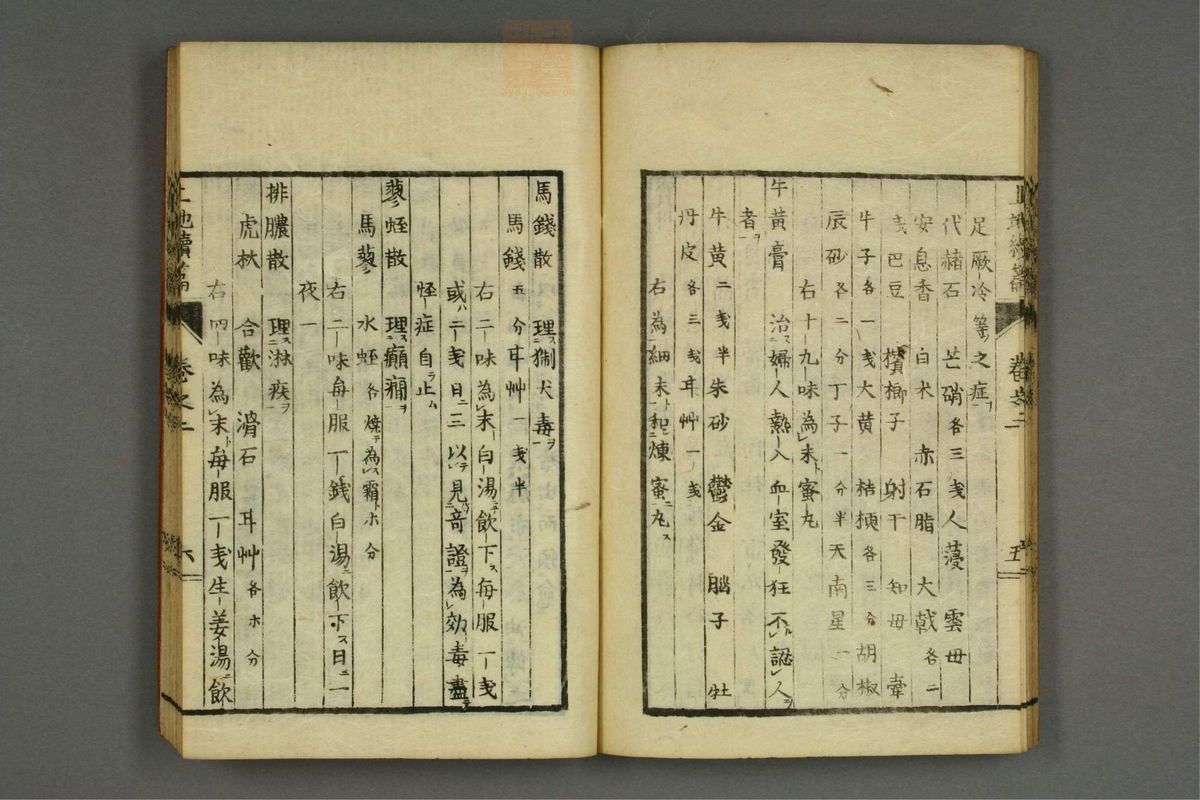 足厥冷等之症ヲ
代赭石 芒硝各三戔人薓 雲母
安息香 白朮 赤石脂 大戟各二
戔巴豆 檳榔子 射干 知母 牽
牛子各一戔大黄 桔梗各三分胡椒
辰砂各二分丁子一分半天南星一分
右十九味為末蜜丸
牛黄膏 治婦人熱入血室發狂不認人
者
牛黄二戔半朱砂 鬱金 脳子 牡
丹皮各三戔耳艸一戔
右為細末和煉蜜丸ス
卷之二
五
馬錢散 理猘犬毒ヲ
馬錢五分耳艸一戔半
右二味為末白湯飲下每服一戔
或ハ二戔日三以見竒證為効毒盡テ
怪症自止ム
蓼蛭散 理癲癇ヲ
馬蓼 水蛭各燒為霜ホ分
右二味每服一錢白湯飲下ス日二一
夜一
排膿散 理淋疾ヲ
虎杖 合歡 滑石 耳艸各ホ分
右四味為末每服一戔生姜湯飲
卷之二
六